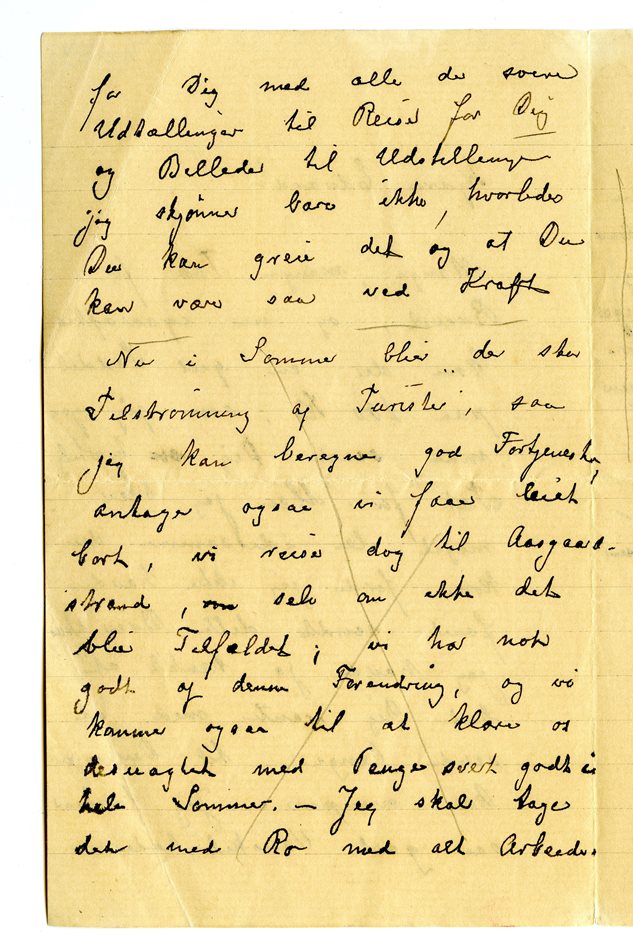 for Dig med alle de svære
Udtællinger til Reise for Dig
og Billeder til Udstillinger
jeg skjønner bare ikke, hvorledes
Du kan greie det og at Du
kan være saa ved Kraft
Nu i Sommer blier der stor
Tilstrømning af Turister, saa
jeg kan beregne god Fortjeneste,
antager ogsaa vi faar leiet
bort, vi reiser dog til Aasgaard-
strand, selv om ikke det
blir Tilfældet; vi har nok
godt af denne Forandring, og vi
kommer ogsaa til at klare os
desuagtet med Penge svert godt i
hele Sommer. – Jeg skal tage
det med Ro med alt Arbeide.